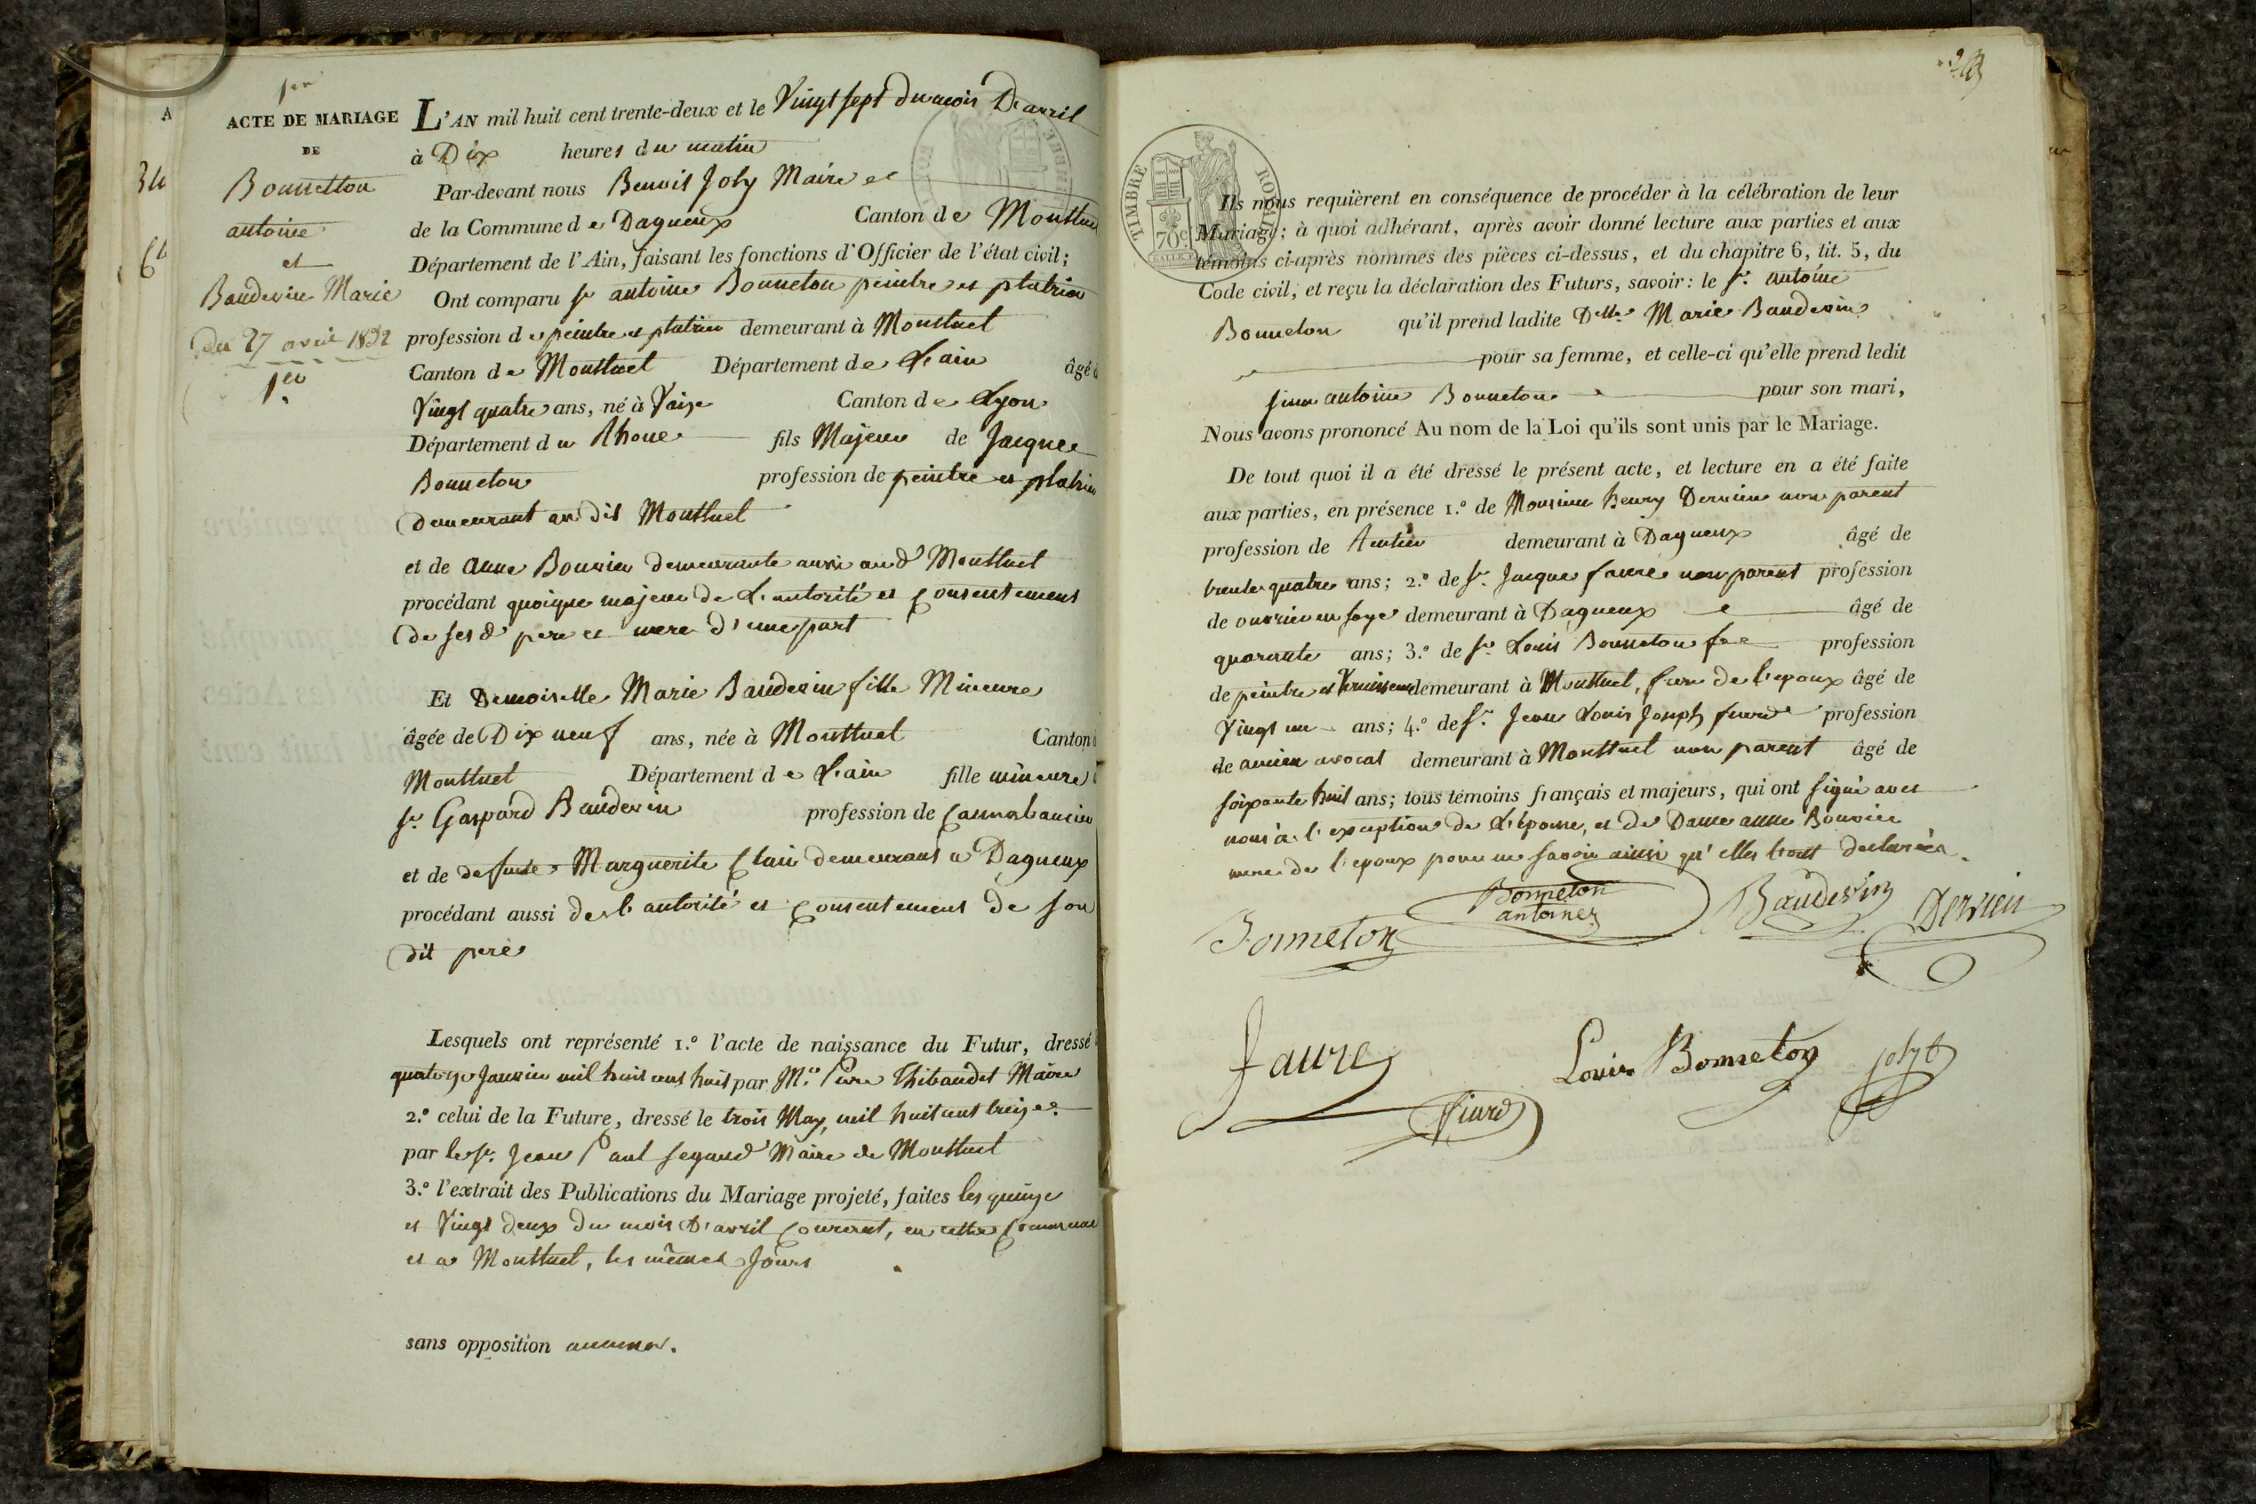 1er
ACTE DE MARIAGE
DE
Bonnetton
antoine
et
Baudevin Marie
Du 27 avril 1832
1er
A
34
64
L'AN mil huit cent trente-deux et le Vingt sept du mois D'avril
à Dix heures du matin
Par-devant nous Benoit Joly Maire et
de la Commune de Dagneux Canton de Montluel
Département de l'Ain, faisant les fonctions d'Officier de l'état civil;
Ont comparu sr antoine Bonneton peintre et platrier
profession de peintre et platrier demeurant à Montluel
Canton de Montluel Département de L'ain âgé d
Vingt quatre ans, né à Vaize Canton de Lyon
Département du Rhone fils Majeur de Jacques
Bonneton profession de peintre et platrier
demeurant au dit Montluel
et de anne Bouvier demeurante aussi aud Montluel
procédant quoique majeur de L'autorité et consentement
de ses d pere et mere d'une part
Et Demoiselle Marie Baudevin fille Mineure
âgée de Dix neuf ans, née à Montluel Canton d
Montluel Département de L'ain fille mineure
sr Gaspard Baudevin profession de
et de defunte Marguerite Clair demeurant a Dagneux
procédant aussi de l'autorité et consentement de son
dit pere
Lesquels ont représenté 1.º l'acte de naissance du Futur, dressé
quatorze Janvier mil huit cent huit par Mr Pierre Thibaudet Maire
2.º celui de la Future, dressé le trois May, mil huit cent treize
par le sr. Jean Paul Segaud Maire de Montluel
3.º l'extrait des Publications du Mariage projeté, faites les quinze
et Vingt deux du mois D'avril Courant, en cette Commune
et a Montluel, les mêmes Jours
sans opposition aucune.
TIMBRE ROYAL
70c
Ils nous requièrent en conséquence de procéder à la célébration de leur
Mariage; à quoi adhérant, après avoir donné lecture aux parties et aux
témoins ci-après nommés des pièces ci-dessus, et du chapitre 6, tit. 5, du
Code civil, et reçu la déclaration des Futurs, savoir: le sr. antoine
Bonneton qu'il prend ladite Dlle Marie Baudevin
pour sa femme, et celle-ci qu'elle prend ledit
sieur antoine Bonneton pour son mari,
Nous avons prononcé Au nom de la Loi qu'ils sont unis par le Mariage.
De tout quoi il a été dressé le présent acte, et lecture en a été faite
aux parties, en présence 1.º de Monsieur henry Dervieu non parent
profession de Rentier demeurant à Dagneux âgé de
trente quatre ans; 2.º de sr. Jacque faure non parent profession
de ouvrier en soye demeurant à Dagneux âgé de
quarante ans; 3.º de sr. Louis Bonneton profession
de peintre et Vernisseur demeurant à Montluel, frere de l'epoux âgé de
Vingt un ans; 4.º de sr. Jean Louis Joseph profession
de ancien avocat demeurant à Montluel non parent âgé de
soixante huit ans; tous témoins français et majeurs, qui ont signé avec
nous à l'exception de L'épouse, et de Dame anne Bouvier
mere de l'epoux pour ne savoir ainsi qu'elles l'ont declaréés.
Bonneton
Bonneton
antoine
Baudevin
Dervieu
Faure
Louis Bonneton
Joly B